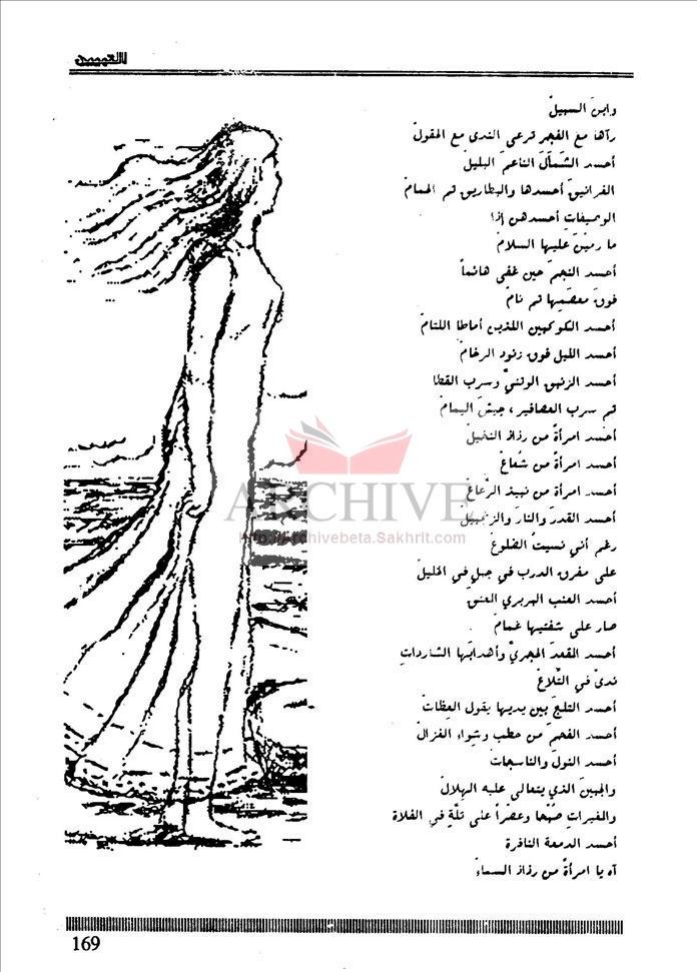 التبيين
وابنَ السبيلْ
رآها مع الفجر ترعى الندى مع الحقولْ
أحسد الشَّمأَلَ الناعمَ البليل
الغرانيقَ أحسدها والبطاريق ثم الحمامْ
الوصيفاتِ أحسدهن إذا
ما رمَيْنَ عليها السلامْ
أحسد النجمَ حين غفى هائماً
فوقَ معصَمِها ثم نامْ
أحسد الكوكبين اللذين أماطا اللثامْ
أحسد الليل فوق زنود الرخامْ
أحسد الزنبق الوثنيَّ وسرب القطا
ثم سرب العصافير، جيشَ اليمامْ
أحسد امرأةً من رذاذ النخيلْ
أحسد امرأةً من شُعاعْ
أحسد امرأة من نبيذ الرَّعاعْ
أحسد القدرَ والنارَ والزنجبيلْ
رغم أني نسيتُ الضلوعَ
على مفرق الدرب في جبلٍ في الخليلْ
أحسد العنب البربري العتقْ
صار على شفتيها غمامْ
أحسد المقعدَ الحجريَّ وأهدابَها الشارداتِ
ندىً في التِّلاعْ
أحسد الثلجَ بين يديها يقول العِظاتْ
أحسد الفحمَ من حطب وشِواء الغزالْ
أحسد النَولَ والناسجاتْ
والجبينَ الذي يتعالى عليه الهِلالْ
والمغيراتِ صُبْحا وعصْراً على تلّةٍ في الفلاة
أحسد الدمعة النافرة
آه يا امرأةً من رذاذ السماءْ
ARCHIVE
http://Archivebeta.Sakhrit.com
169